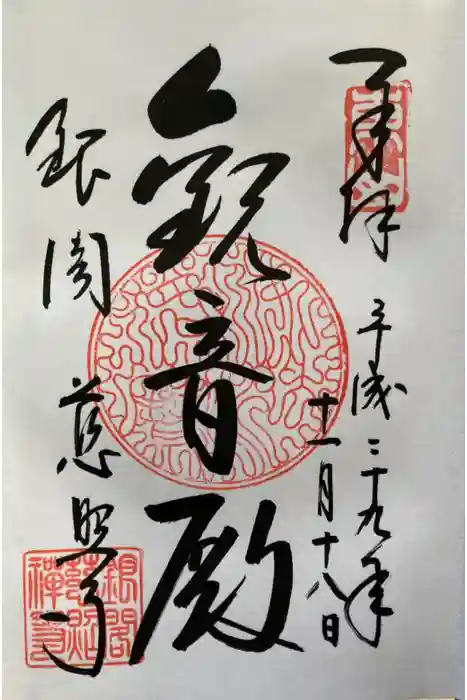 奉拝
平成二十九年
十一月十八日
觀音殿
銀閣 慈照寺
銀閣慈照禅寺